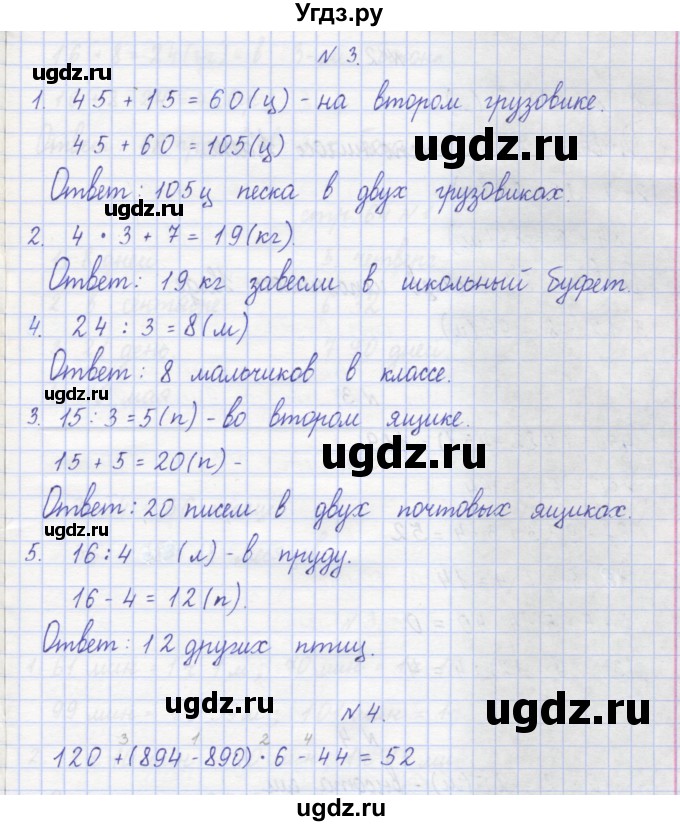 Угдз.ру
№ 3.
1. 45 + 15 = 60 (ц) - на втором грузовике.
45 + 60 = 105 (ц)
Ответ: 105 ц песка в двух грузовиках.
2. 4 • 3 + 7 = 19 (кг).
Ответ: 19 кг завесли в школьный буфет.
4. 24 : 3 = 8 (м)
Ответ: 8 мальчиков в классе.
3. 15 : 3 = 5 (п) - во втором ящике.
15 + 5 = 20 (п) -
Ответ: 20 писем в двух почтовых ящиках.
5. 16 : 4 (л) - в пруду.
16 - 4 = 12 (п).
Ответ: 12 других птиц.
№ 4.
3 1 2 4
120 + (894 - 890) • 6 - 44 = 52
ugdz.ru
ugdz.ru
ugdz.ru
ugdz.ru
ugdz.ru
ugdz.ru
ugdz.ru
ugdz.ru
ugdz.ru
ugdz.ru
ugdz.ru